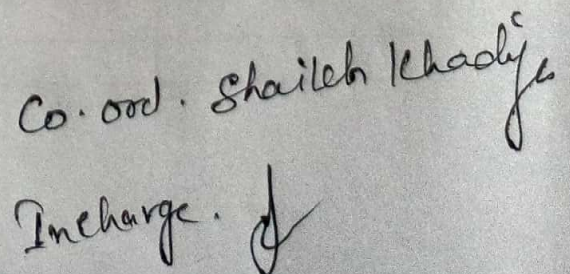 Co. ord. Shaikh Khadija
Incharge.